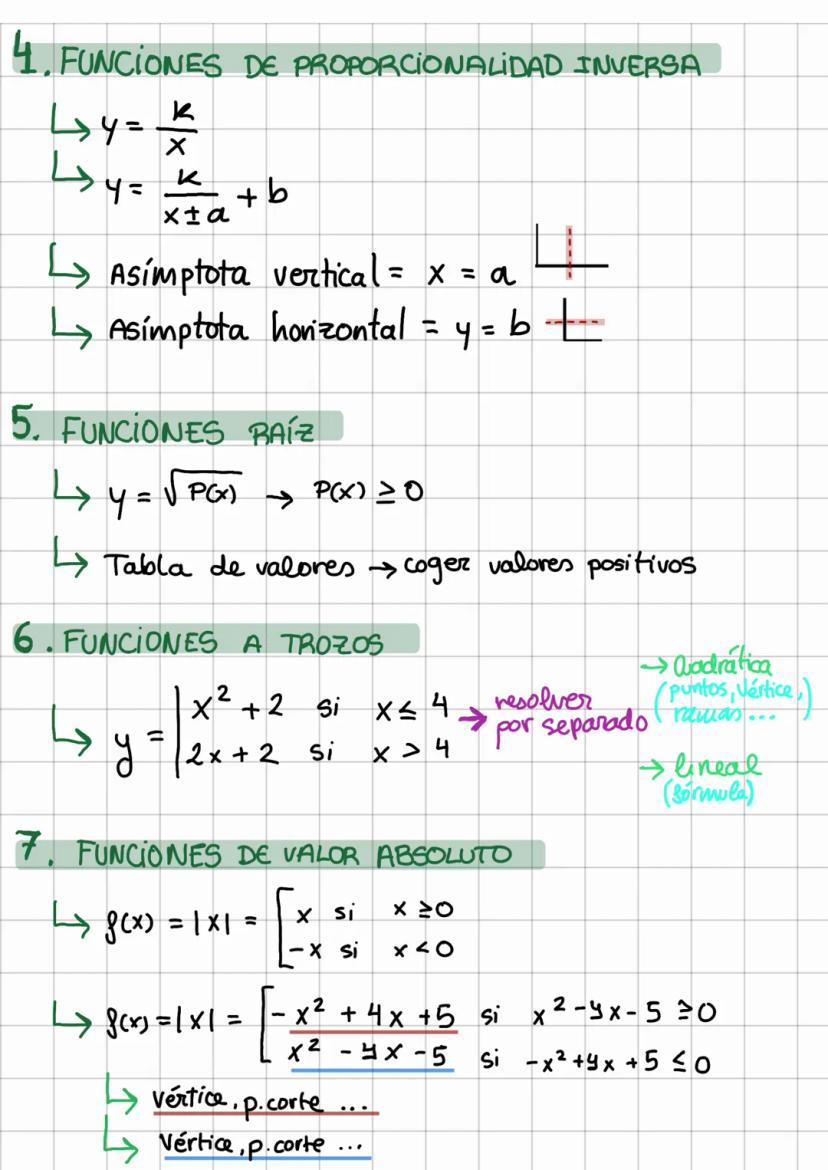 4. FUNCIONES DE PROPORCIONALIDAD INVERSA
↳ y = k/x
↳ y = k/(x ± a) + b
↳ Asímptota vertical = x = a
↳ Asímptota horizontal = y = b
5. FUNCIONES RAÍZ
↳ y = √P(x) → P(x) ≥ 0
↳ Tabla de valores → coger valores positivos
6. FUNCIONES A TROZOS
↳ y = | x² + 2 si x ≤ 4
2x + 2 si x > 4
→ resolver
por separado
→ Cuadrática
(puntos, vértice,
ramas ...)
→ lineal
(fórmula)
7. FUNCIONES DE VALOR ABSOLUTO
↳ f(x) = |x| = [ x si x ≥ 0
-x si x < 0
↳ f(x) = |x| = [ -x² + 4x + 5 si x² - 4x - 5 ≥ 0
x² - 4x - 5 si -x² + 4x + 5 ≤ 0
↳ Vértice, p. corte ...
↳ Vértice, p. corte ...